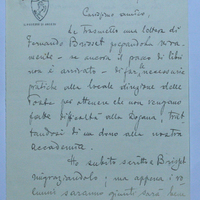 Carissimo amico,
Le trasmetto una lettera di
Fernando Brisset pregandola vera
mente - se ancora il pacco di libri
non è arrivato - di far, necessarie
pratiche alla locale direzione delle
Poste per ottenere che non vengano
fatte difficoltà alla Dogana, trat
tandosi di un dono alla nostra
Accademia.
Ho subito scritto a
ringraziandolo; ma appena i vo
lumi saranno giunti sarà bene